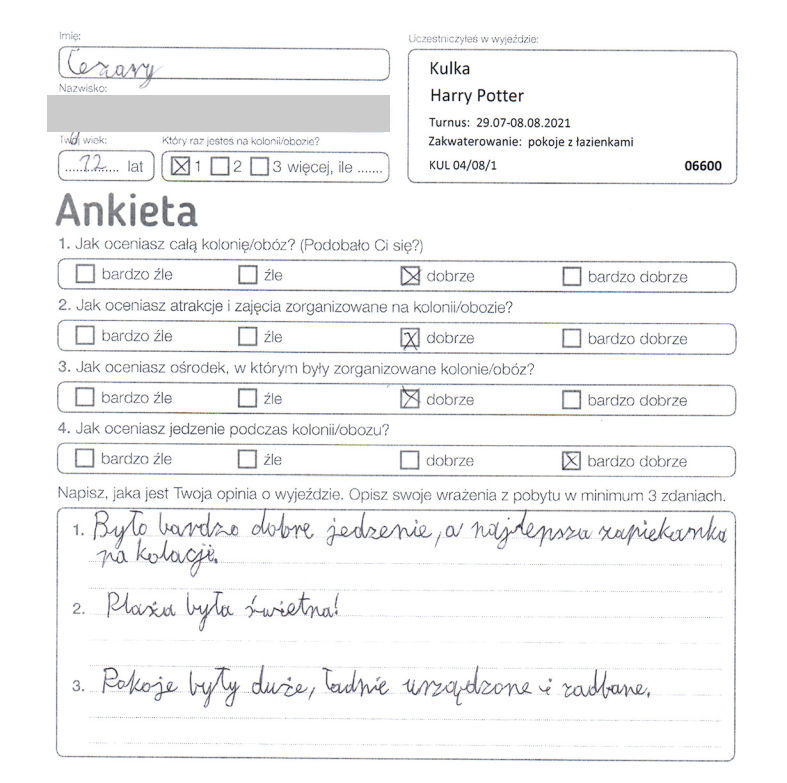 Imię:
Cezary
Nazwisko:
Twój wiek:
12 lat
Który raz jesteś na kolonii/obozie?
1 2 3 więcej, ile .......
Uczestniczyłeś w wyjeździe:
Kulka
Harry Potter
Turnus: 29.07-08.08.2021
Zakwaterowanie: pokoje z łazienkami
KUL 04/08/1 06600
Ankieta
1. Jak oceniasz całą kolonię/obóz? (Podobało Ci się?)
bardzo źle źle dobrze bardzo dobrze
2. Jak oceniasz atrakcje i zajęcia zorganizowane na kolonii/obozie?
bardzo źle źle dobrze bardzo dobrze
3. Jak oceniasz ośrodek, w którym były zorganizowane kolonie/obóz?
bardzo źle źle dobrze bardzo dobrze
4. Jak oceniasz jedzenie podczas kolonii/obozu?
bardzo źle źle dobrze bardzo dobrze
Napisz, jaka jest Twoja opinia o wyjeździe. Opisz swoje wrażenia z pobytu w minimum 3 zdaniach.
1. Było bardzo dobre jedzenie, a najlepsza zapiekanka
na kolacji.
2. Plaża była świetna!
3. Pokoje były duże, ładnie urządzone i zadbane.